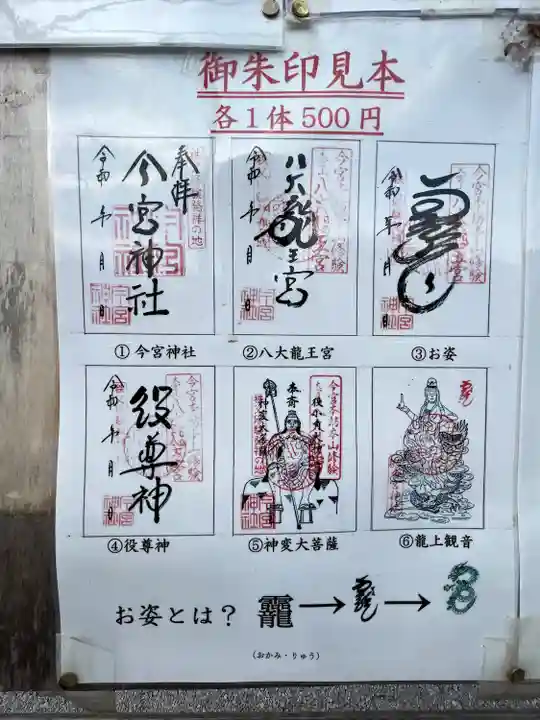 御朱印見本
各1体500円
奉拝
今宮神社
令和 年 月 日
①今宮神社
八大龍王宮
令和 年 月
②八大龍王宮
令和 年 月
③お姿
役尊神
令和 年 月
④役尊神
⑤神変大菩薩
⑥龍上観音
お姿とは?
龗→
→
(おかみ・りゅう)